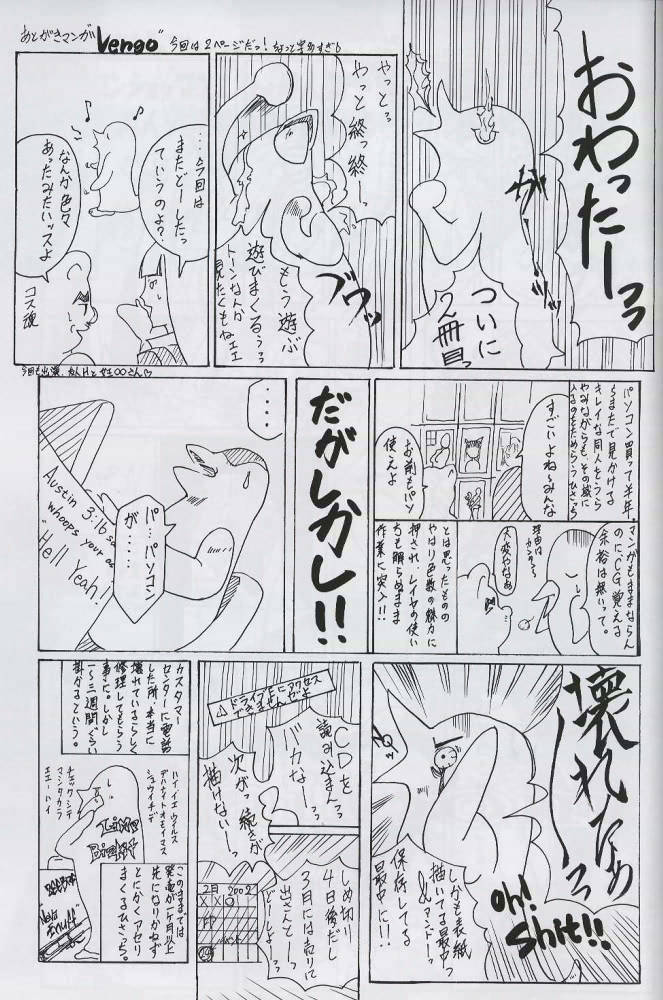 あとがきマンガ "Vengo" 今回は2ページだっ!
おわったーっ
ついに
2冊目っ
やっとっ
やっと終っ終ーっ
ブワッ
もう遊ぶ
遊びまくるぅっ
トーンなんか
見たくもねェェ
…今回は
またどーしたっ
ていうのよ?
なんか色々
あったみたいッスよ
コス魂
パソコン買って半年
すごいよね〜みんな
お前もパソ
使えよ
マンガもままならん
のにCG覚える
余裕は無いって。
理由は
カンタン〜
大変やなぁ
とは思ったものの
やはり色数の魅力に
押され、レイヤの使い
方も解らぬまま
作業に突入!!
だがしかし!!
‥‥
パ…パソコン
が……
Austin 3:16 sa
whoops your as
"Hell Yeah!
壊れたぁーっ
Oh!
Shit!!
しかも表紙
描いてる最中っ
&アンドーっ
保存してる
最中に!!
⚠ドライブEにアクセス
できませんがよ
CDを
読み込まんっ
バカなーっっ
次がっ続きが
描けないーっ
しめ切り
4日後だし
3月には売りに
出さんとーっ
どーしよっ
2月 2002
カスタマー
センターに電話
した所、本当に
壊れているらしく
修理してもらう
事に。しかし
一〜三週間ぐらい
掛かるという。
ハイ、イエ ウイルス
デハナイトオモイマス
ショウイチデ
チェックシテ
マシタカラ
エエ…ハイ
Limp
Bizkit
このままでは
発売が1ヶ月以上
先になりかねず
とにかくアセリ
まくるひさっち。